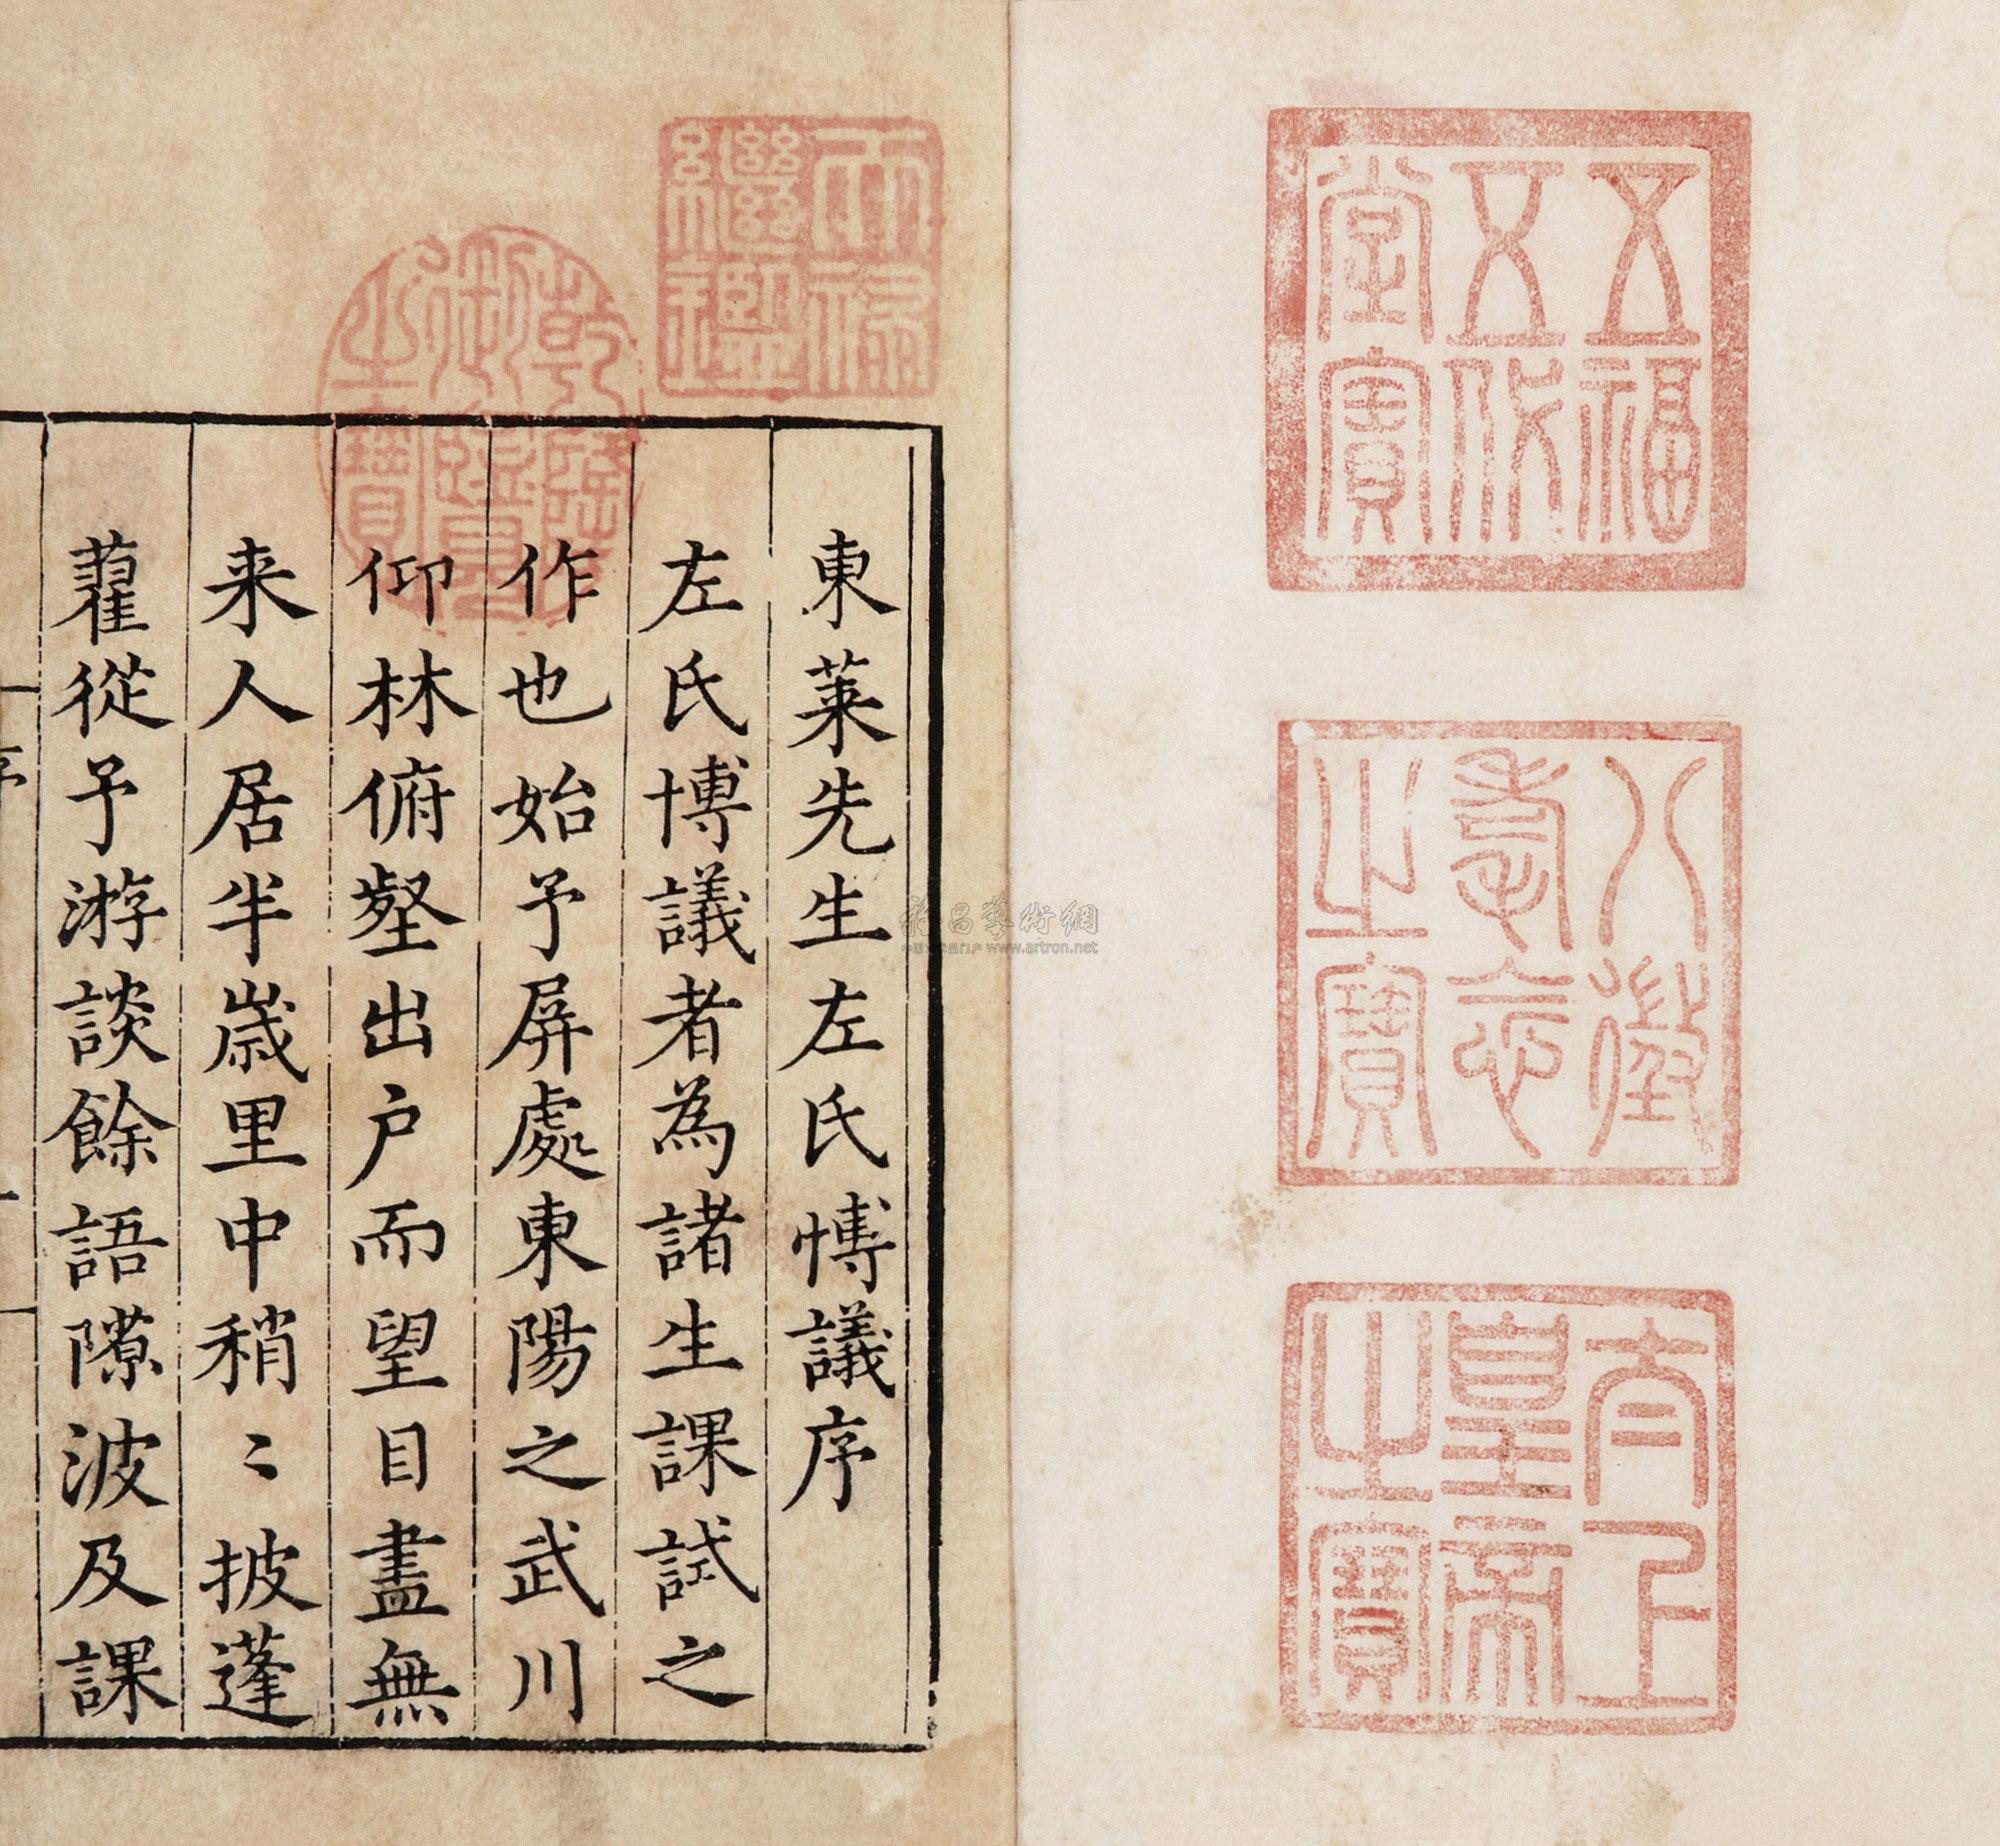 五福五代堂寶
八徵耄念之寶
太上皇帝之寶
天祿繼鑑
乾隆御覽之寶
東萊先生左氏博議序
左氏博議者為諸生課試之
作也始予屏處東陽之武川
仰林俯壑出户而望目盡無
来人居半歲里中稍〻披蓬
藋從予游談餘語隙波及課
序
雅昌藝術網
www.artron.net